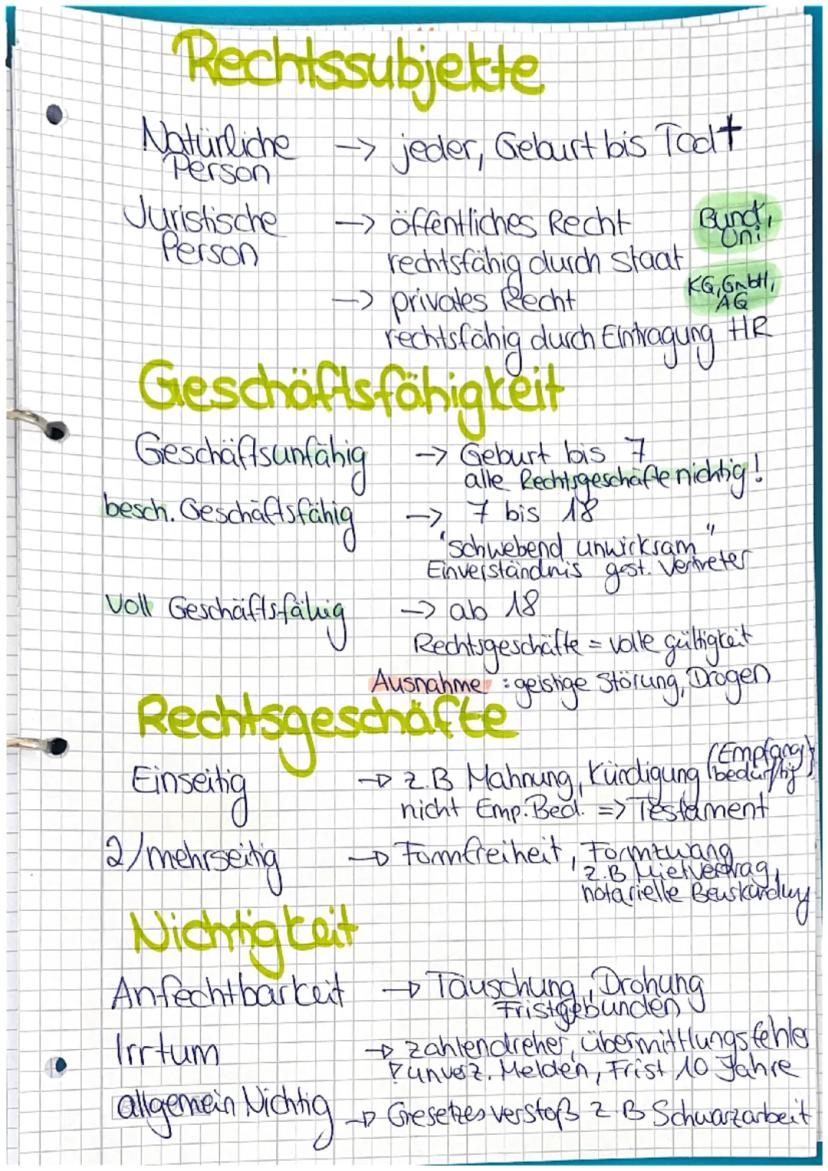 Rechtssubjekte
Natürliche Person → jeder, Geburt bis Tod †
Juristische Person → öffentliches Recht Bund, Uni
rechtsfähig durch Staat
→ privates Recht KG, GmbH, AG
rechtsfähig durch Eintragung HR
Geschäftsfähigkeit
Geschäftsunfähig → Geburt bis 7
alle Rechtsgeschäfte nichtig!
besch. Geschäftsfähig → 7 bis 18
"schwebend unwirksam"
Einverständnis gest. Vertreter
Voll Geschäftsfähig → ab 18
Rechtsgeschäfte = volle gültigkeit
Ausnahme : geistige Störung, Drogen
Rechtsgeschäfte
Einseitig → z.B Mahnung, Kündigung (Empfang) bedürftig
nicht Emp. Bed. => Testament
2/mehrseitig → Formfreiheit, Formzwang
z.B Mietvertrag,
notarielle Beurkundung
Nichtigkeit
Anfechtbarkeit → Täuschung, Drohung
Fristgebunden
Irrtum → zahlendreher, übermittlungsfehler
unverz. Melden, Frist 10 Jahre
allgemein Nichtig → Gesetzesverstoß z B Schwarzarbeit